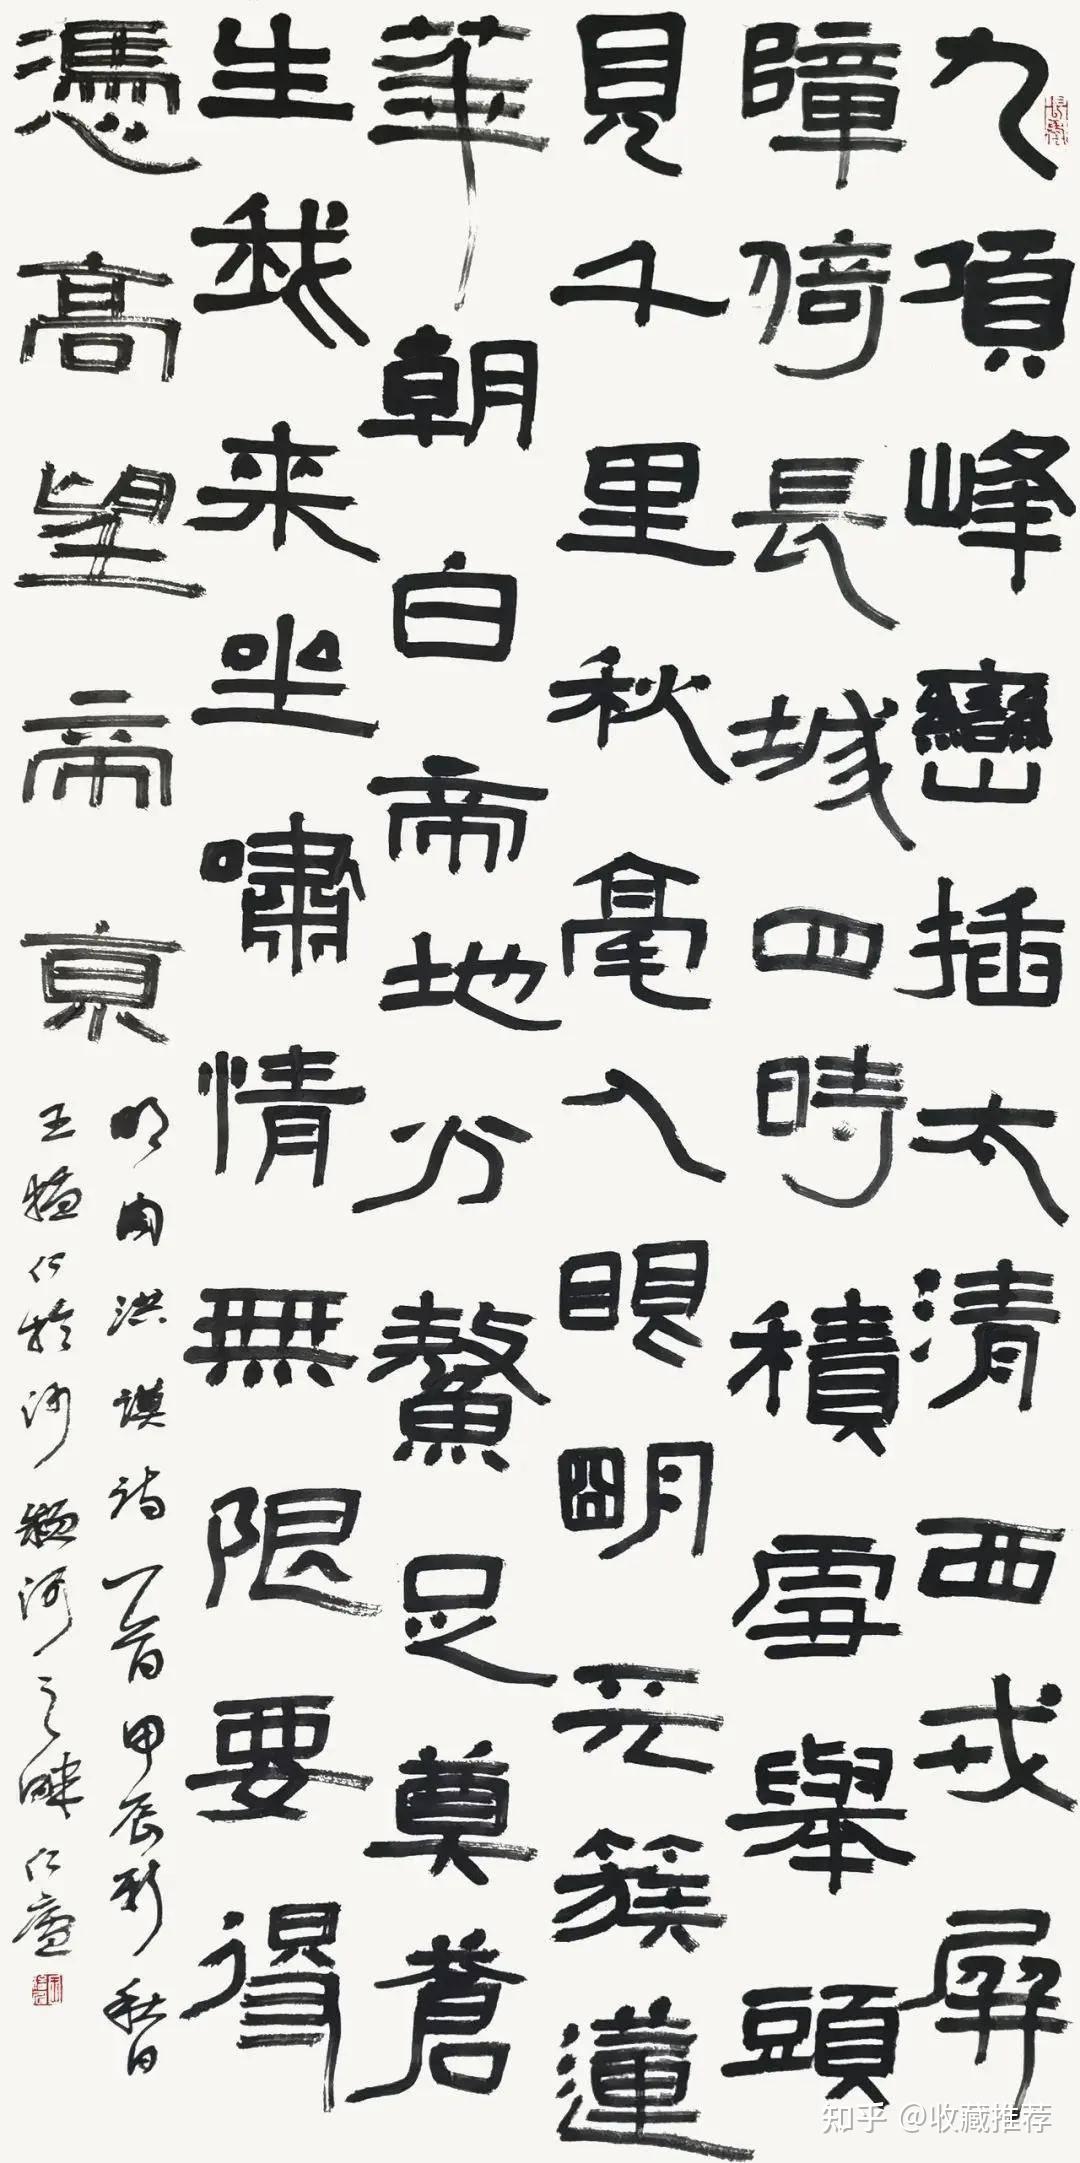 九頂峰巒插太清西戎屏
障倚長城四時積雪舉頭
見千里秋毫入眼明天簇蓮
華朝白帝地分鰲足奠蒼
生我来坐嘯情無限要得
憑高望帝京
明周洪謨詩一首甲辰新秋日
王仁於沙潁河之畔仁廬
知乎 @收藏推荐